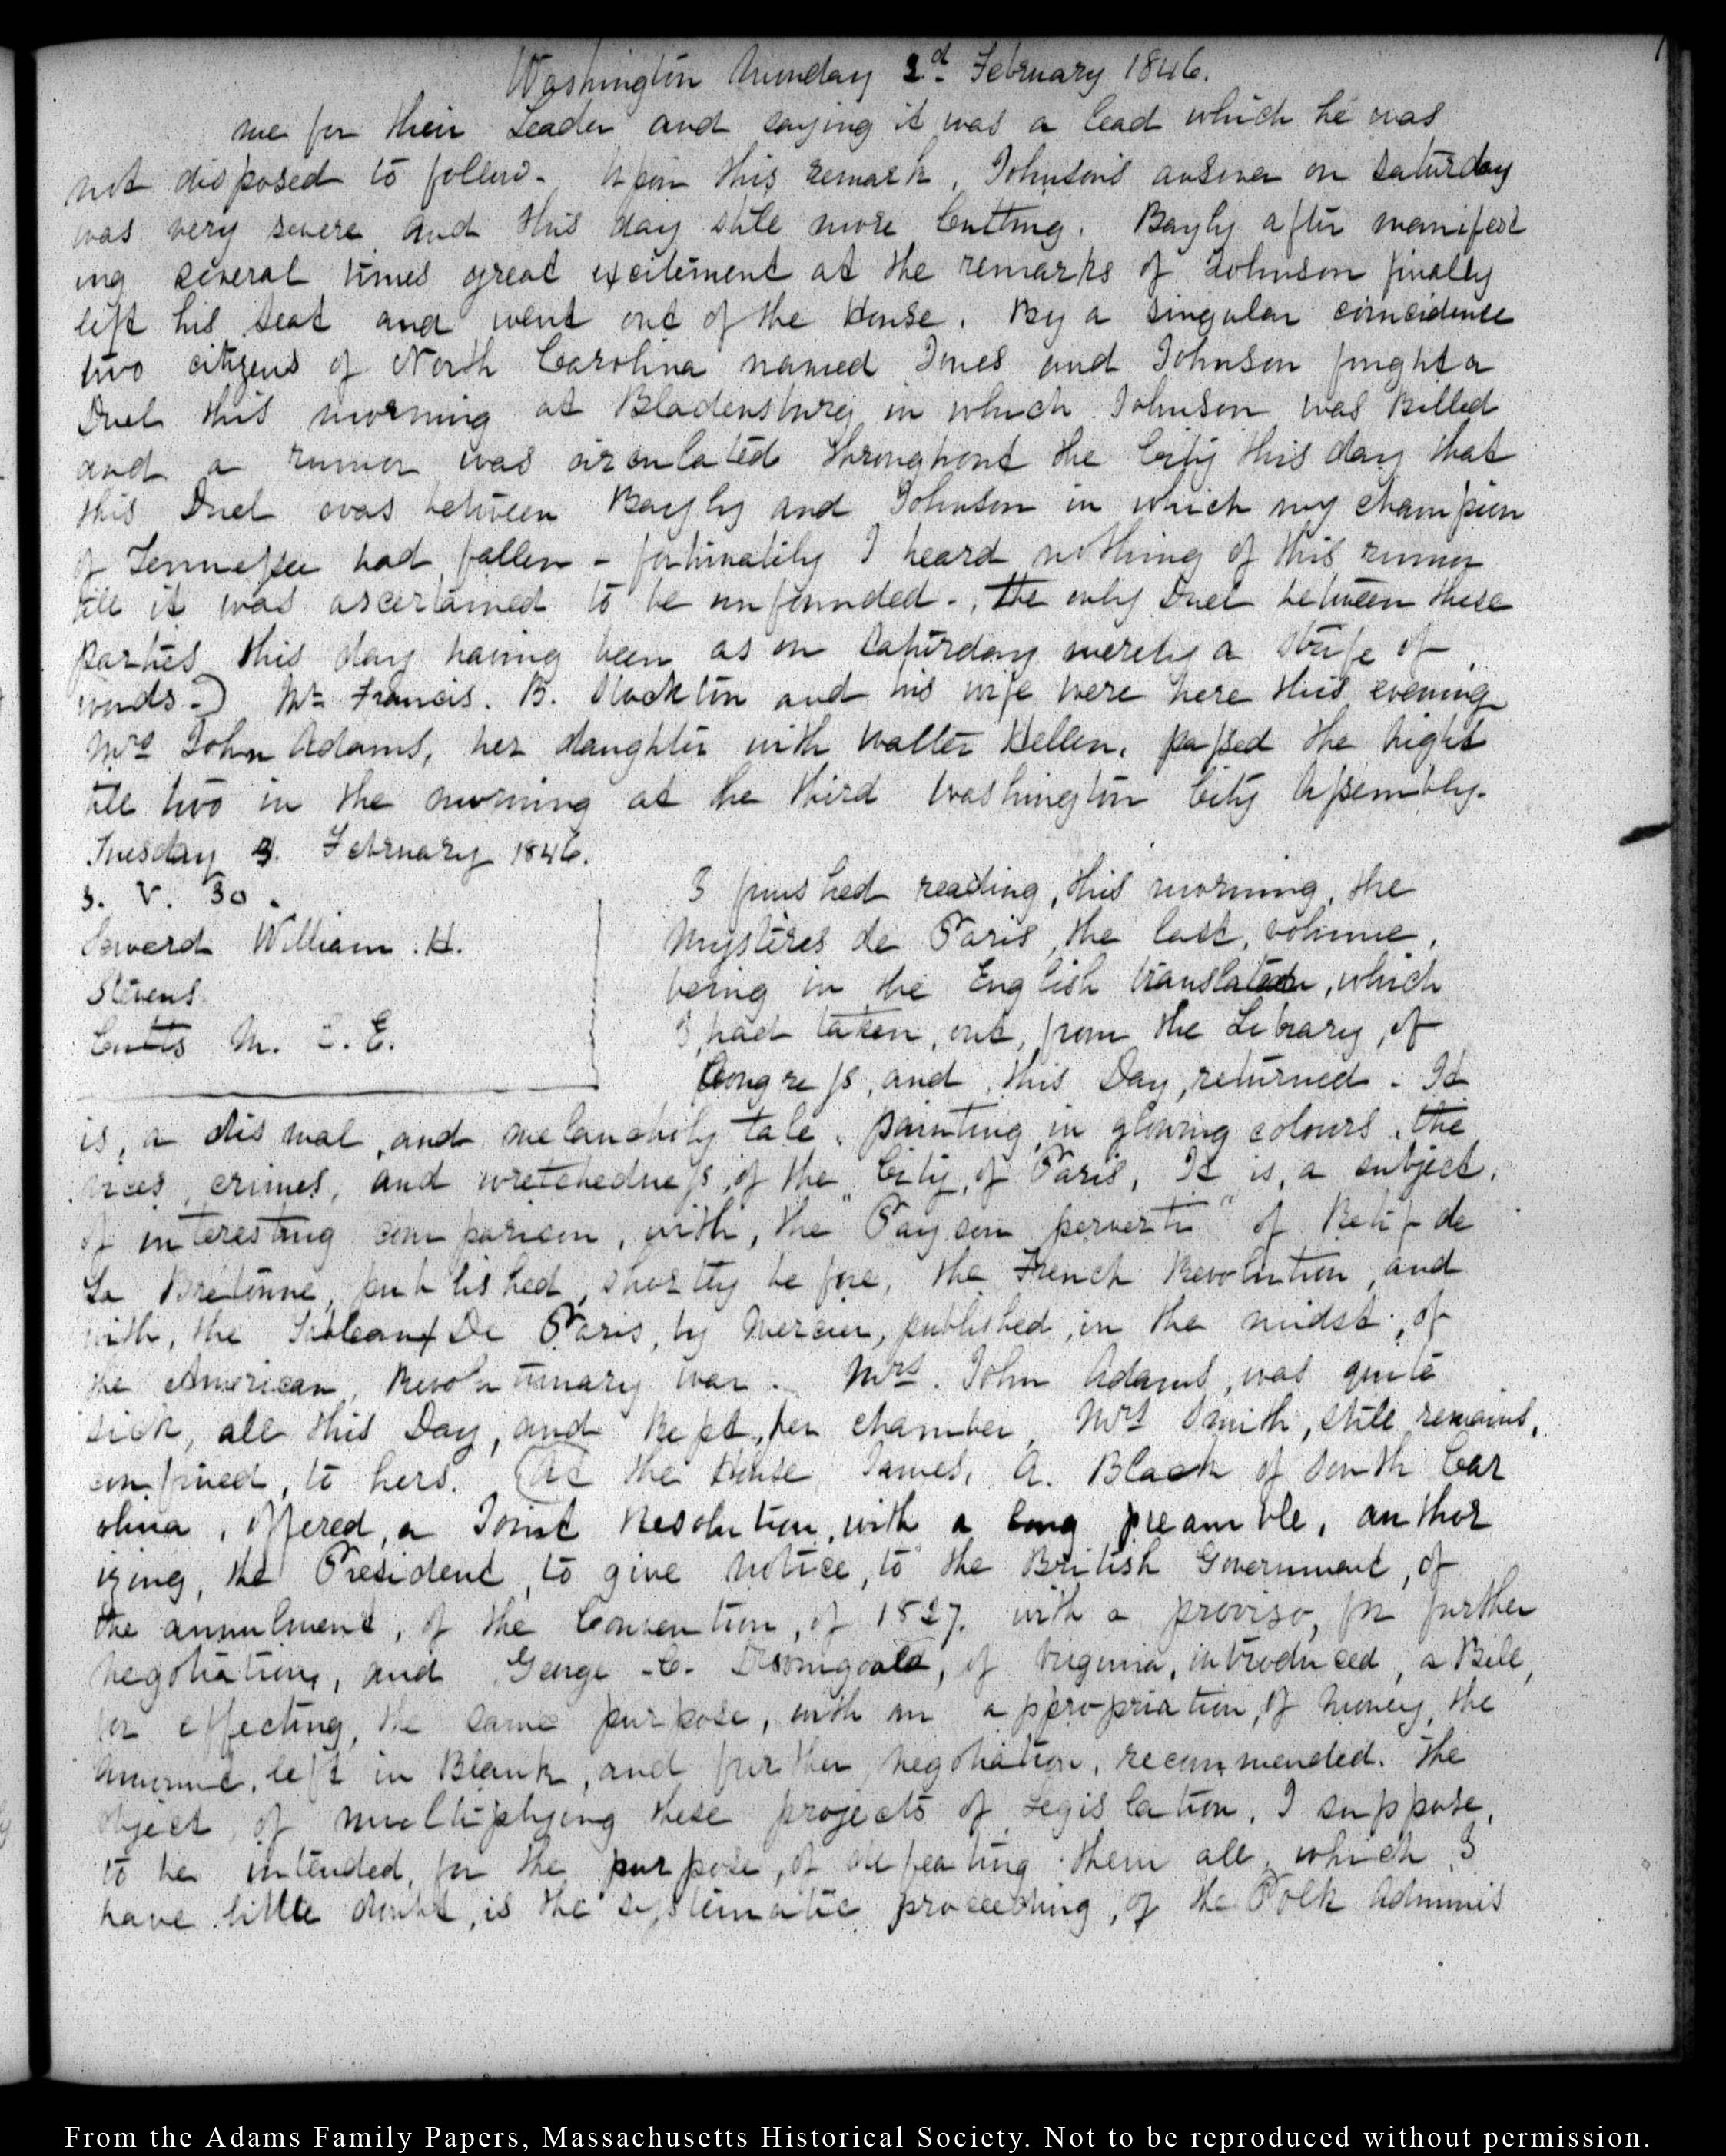 Washington Monday 2.d February 1846.
me for their Leader and saying it was a lead which he was
not disposed to follow. Upon this remark, Johnson's answer on Saturday
was very severe and this day still more cutting. Bayly after manifest
ing several times great excitement at the remarks of Johnson finally
left his seat and went out of the House. By a singular coincidence
two citizens of North Carolina named Jones and Johnson fought a
Duel this morning at Bladensburg in which Johnson was killed
and a rumor was circulated throughout the City this day that
this Duel was between Bayly and Johnson in which my champion
of Tennessee had fallen - fortunately I heard nothing of this rumor
till it was ascertained to be unfounded -, the only Duel between these
parties this day having been as on Saturday merely a strife of
words -) Mr. Francis. B. Stockton and his wife were here this evening
Mrs John Adams, her daughter with Walter Hellen, passed the night
till two in the morning at the third Washington City Assembly.
Tuesday 3. February 1846.
3. V. 30.
Seward William. H.
Stevens
Curtis M. E. E.
I finished reading, this morning, the
Mystères de Paris, the last, volume,
being in the English translation, which
I, had taken, out, from the Library, of
Congress, and, this Day, returned - It
is, a dismal, and melancholy tale, painting in glowing colours, the
vices, crimes, and wretchedness, of the City, of Paris, It is, a subject,
of interesting comparison, with, the "Paysan perverti" of Retif de
La Bretonne, published, shortly before, the French Revolution, and
with, the Tableaux De Paris, by Mercier, published, in the midst, of
the American, Revolutionary war. Mrs. John Adams, was quite
sick, all this Day, and kept, her chamber, Mrs Smith, still remains,
confined, to hers. (At the House, James, A. Black of South Car
olina, offered, a Joint Resolution, with a long preamble, author
izing, the President, to give notice, to the British Government, of
the annulment, of the Convention, of 1827. with a proviso, for further
negotiation, and George C. Dromgoole, of Virginia, introduced, a Bill,
for effecting, the same purpose, with an appropriation, of money, the
amount, left in Blank, and further negotiation, recommended. The
object, of multiplying these projects of Legislation, I suppose,
to be intended, for the purpose, of defeating them all, which, I
have little doubt, is the systematic proceeding, of the Polk Adminis
From the Adams Family Papers, Massachusetts Historical Society. Not to be reproduced without permission.